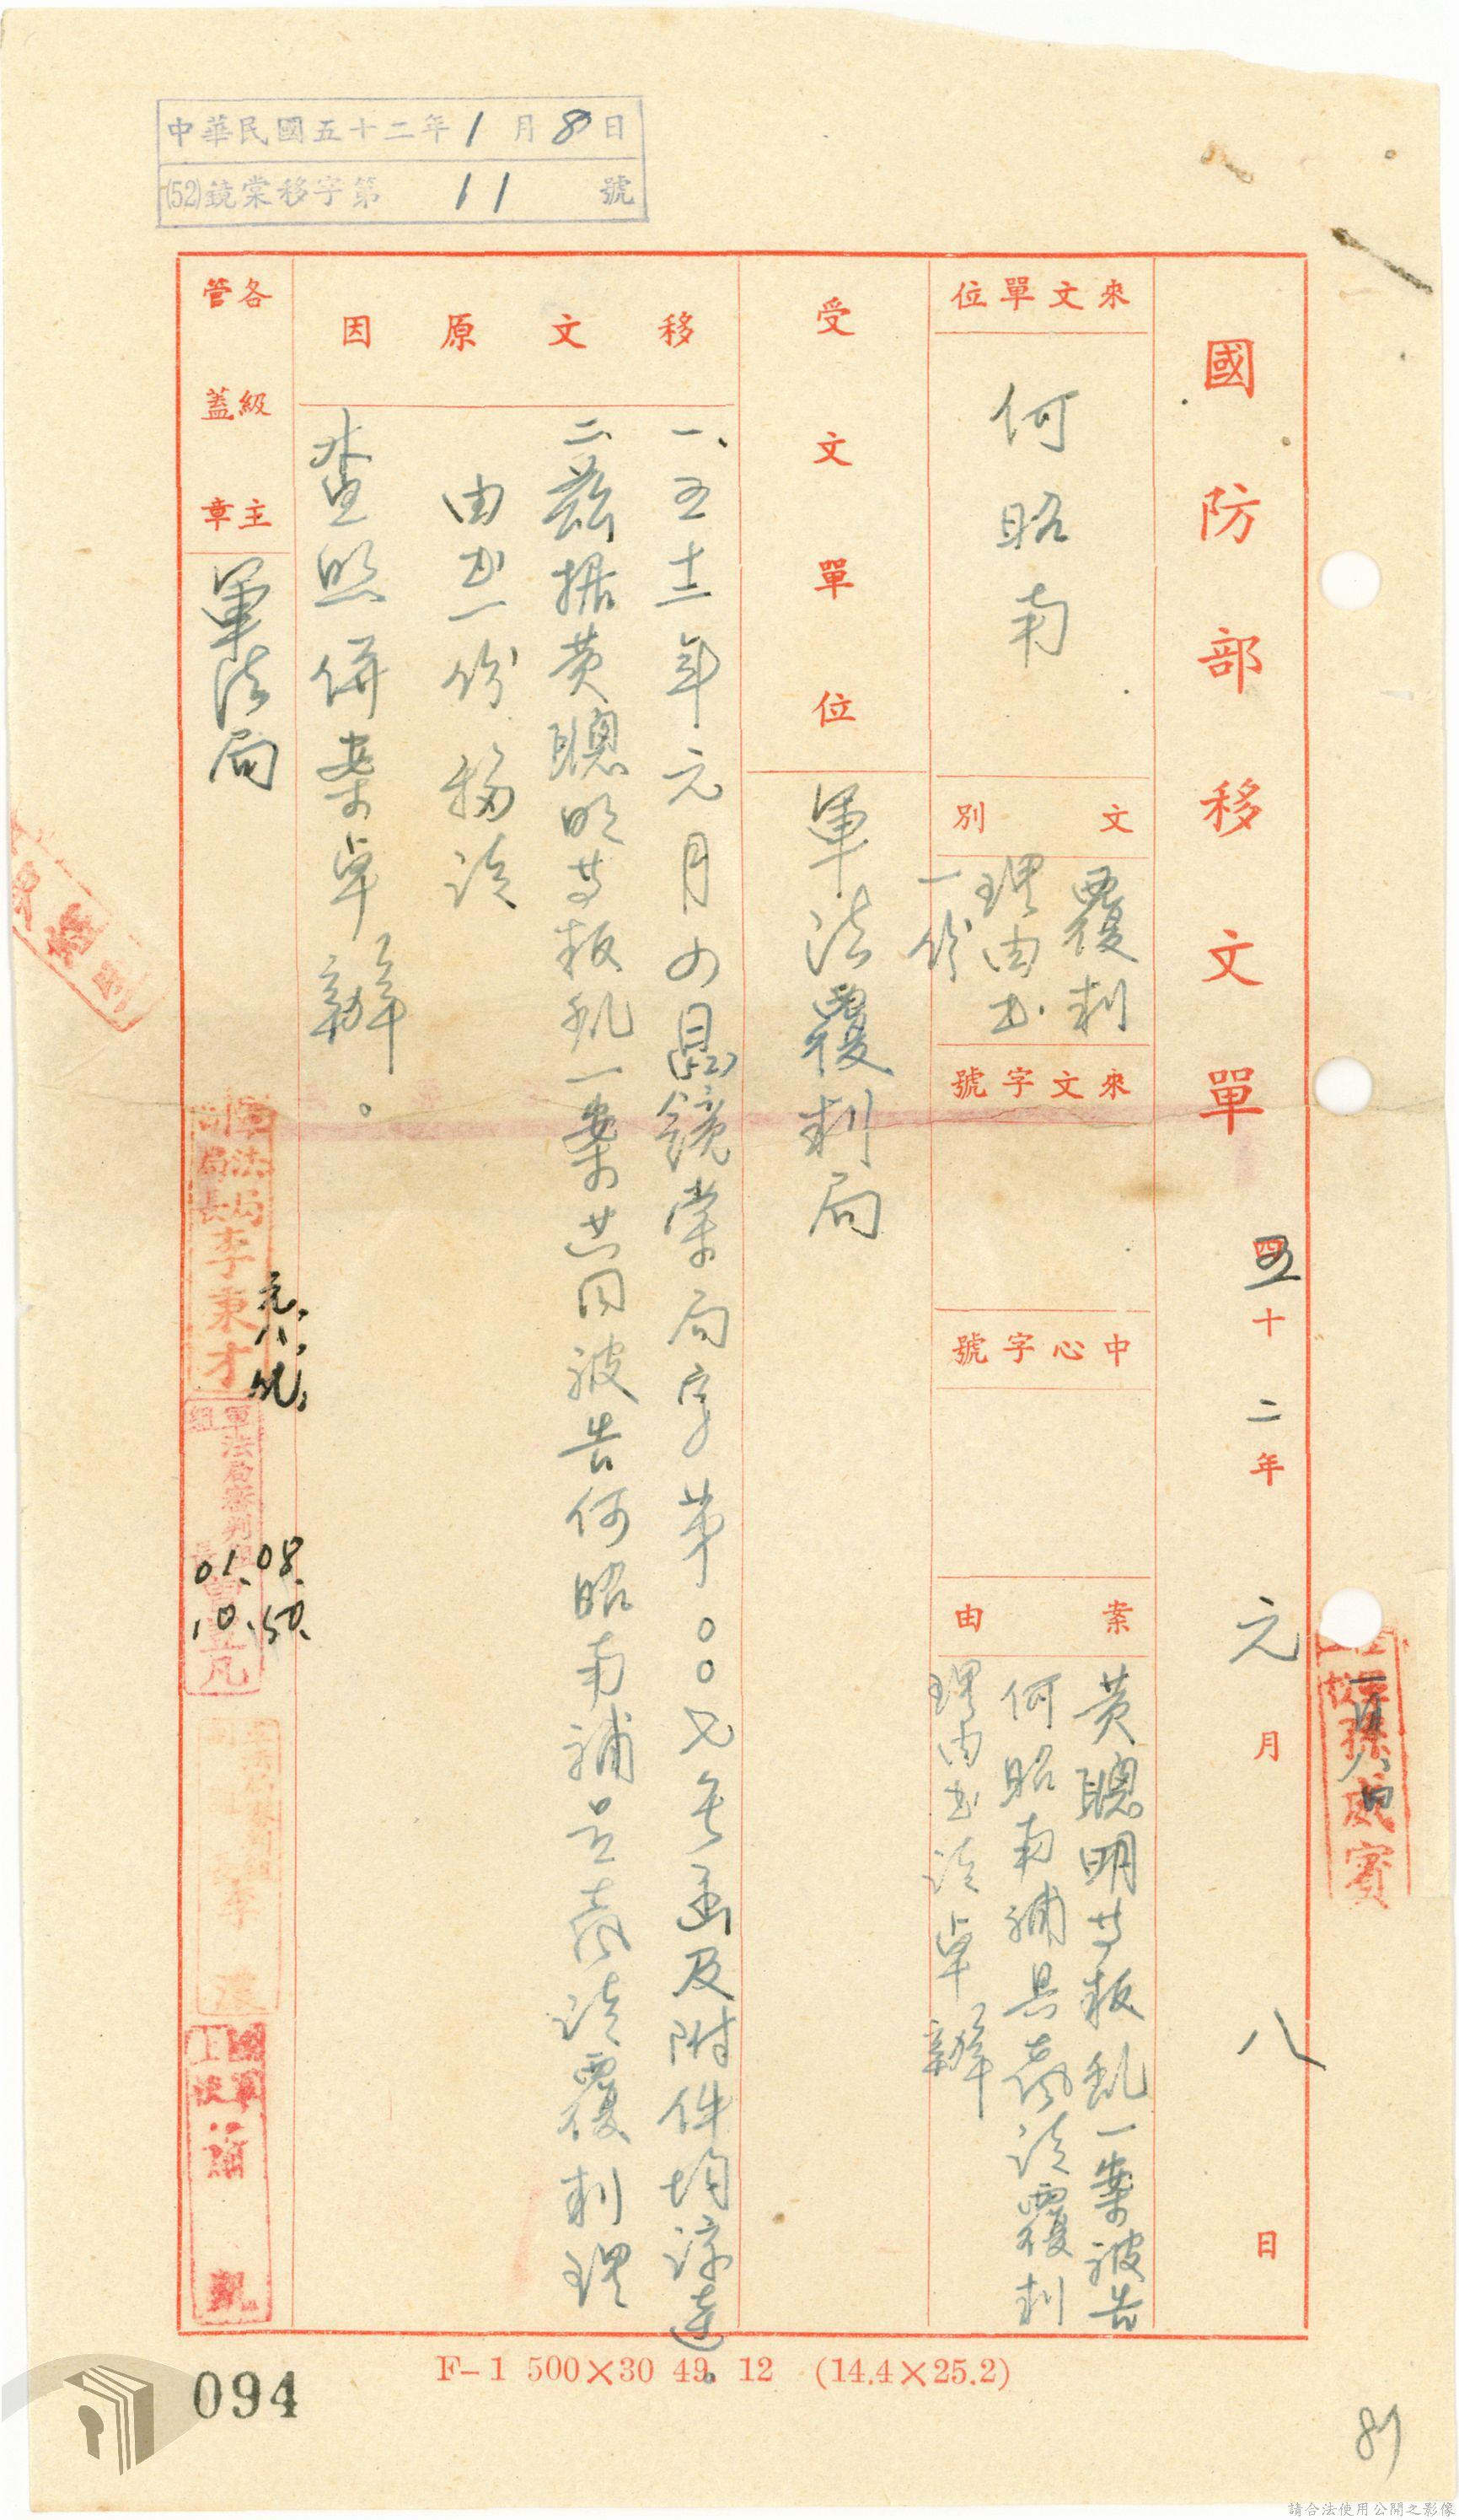 中華民國五十二年1月8日
(52)鏡棠移字第 11 號
國防部移文單 五十二年元月八日
來文單位
何昭南
文別
覆判
理由書
一份
來文字號
中心字號
案由
黃聰明等叛亂一案被告
何昭南補具聲請覆判
理由書請卓辦
受文單位
軍法覆判局
移文原因
一、五十二年元月四日(52)鏡棠局字第〇〇七號函及附件均諒達。
二、茲據黃聰明等叛亂一案共同被告何昭南補呈聲請覆判理
由書一份移請
查照併案卓辦。
各級主管蓋章
軍法局
軍法局
副局長李秉才
元、八、
軍法局審判組
組長曾豐凡
01.08.
10.50.
李
上校
F-1 500×30 49. 12 (14.4×25.2)
094
81
請合法使用公開之影像